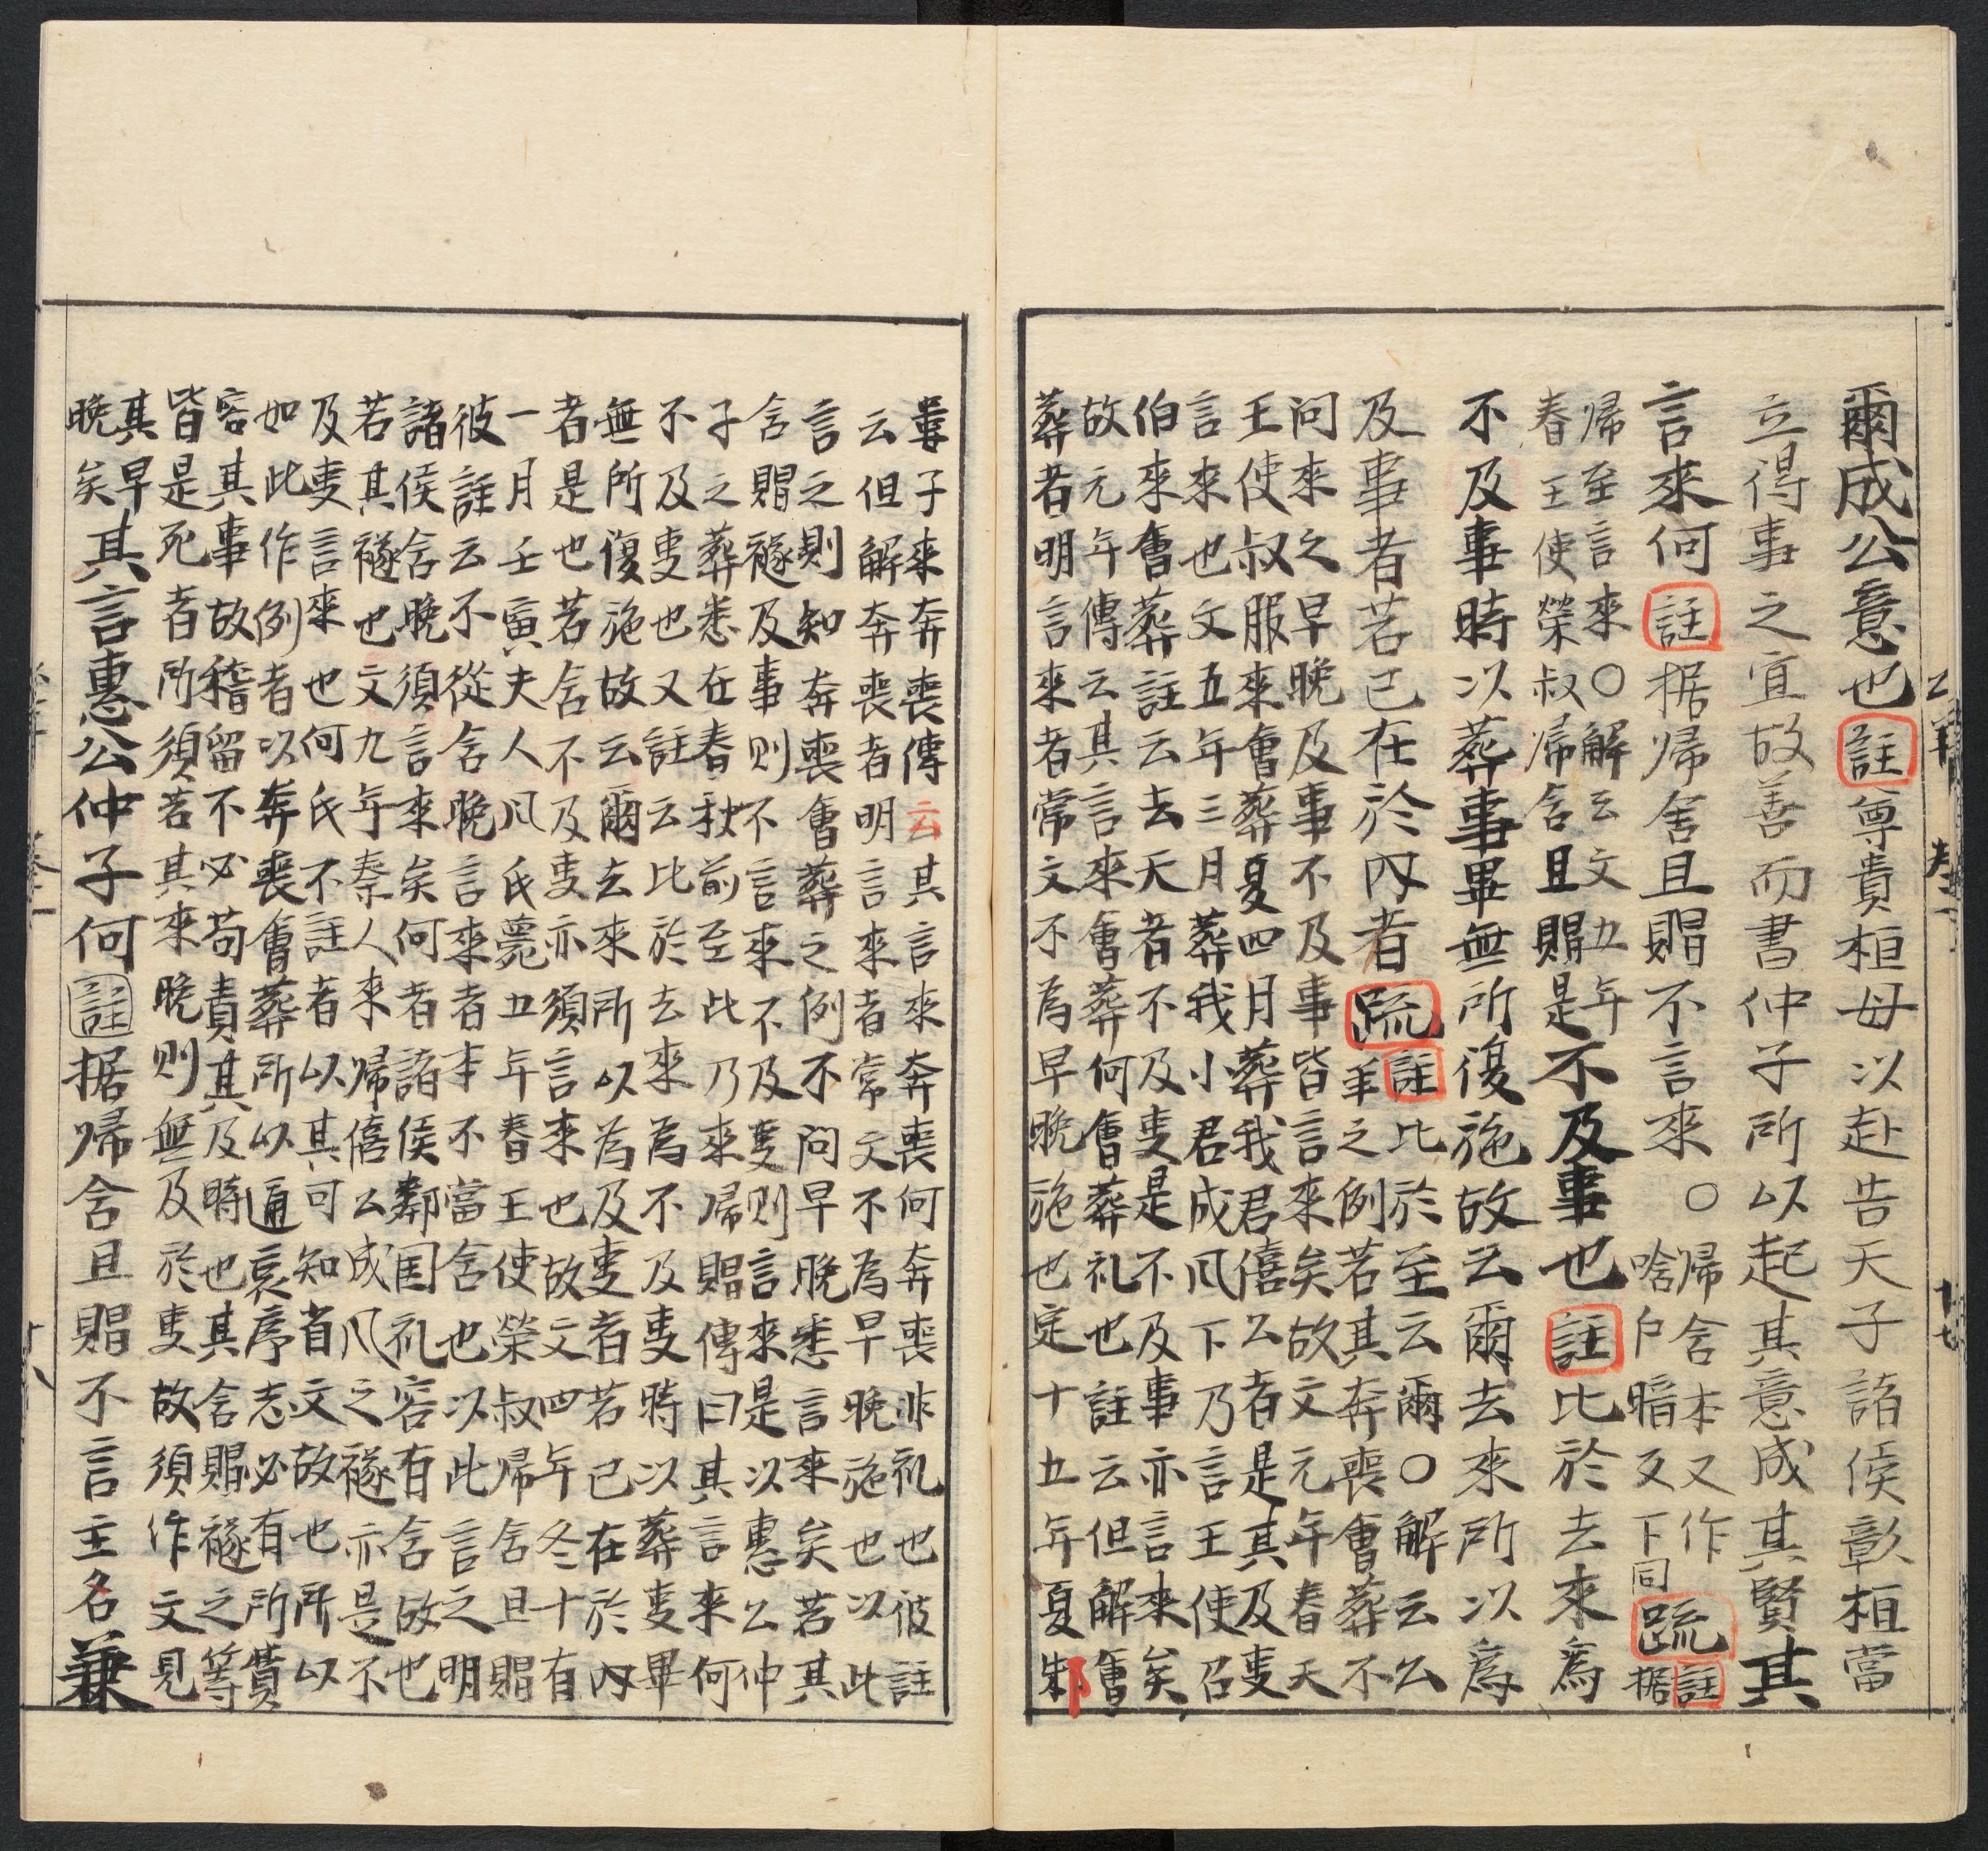 爾成公意也註尊貴桓母以赴告天子諸侯彰桓當
立得事之宜故善而書仲子所以起其意成其賢其
言來何註据帰含且賵不言來○帰含本又作
唅戸暗反下同疏註据
帰至言來○解云文五年
春王使榮叔帰含且賵是不及事也註比於去來為
不及事時以葬事畢無所復施故云爾去來所以為
及事者若已在於内者疏註比於至云爾○解云公
羊之例若其奔喪會葬不
問來之早晚及事不及事皆言來矣故文元年春天
王使叔服來會葬夏四月葬我君僖公者是其及叓
言來也文五年三月葬我小君成風下乃言王使召
伯來會葬註云去天者不及叓是不及事亦言來矣
故元年傳云其言來會葬何會葬礼也註云但解會
葬者明言來者常文不為早晚施也定十五年夏邾
十七
婁子來奔喪傳云其言來奔喪何奔喪非礼也彼註
云但解奔喪者明言來者常文不為早晚施也以此
言之則知奔喪會葬之例不問早晚悉言來矣若其
含賵襚及事則不言來不及叓則言來是以惠公仲
子之葬悉在春秋前至此乃來帰賵傳曰其言來何
不及叓也又註云比於去來為不及叓時以葬叓畢
無所復施故云爾去來所以為及叓者若已在於内
者是也若含不及叓亦須言來也故文四年冬十有
一月壬寅夫人風氏薨五年春王使榮叔帰含且賵
彼註云不從含晚言來者本不當含也以此言之明
諸侯含晚須言來矣何者諸侯鄰国礼容有含故也
若其襚也文九年秦人來帰僖公成風之襚亦是不
及叓言來也何氏不註者以其可知省文故也所以
如此作例者以奔喪會葬所以通哀序志必有所費
容其事故稽留不必苟責其及時也其含賵襚之等
皆是死者所須若其來晚則無及於叓故須作文見
其早
晚矣其言惠公仲子何註据帰含且賵不言主名兼
十八